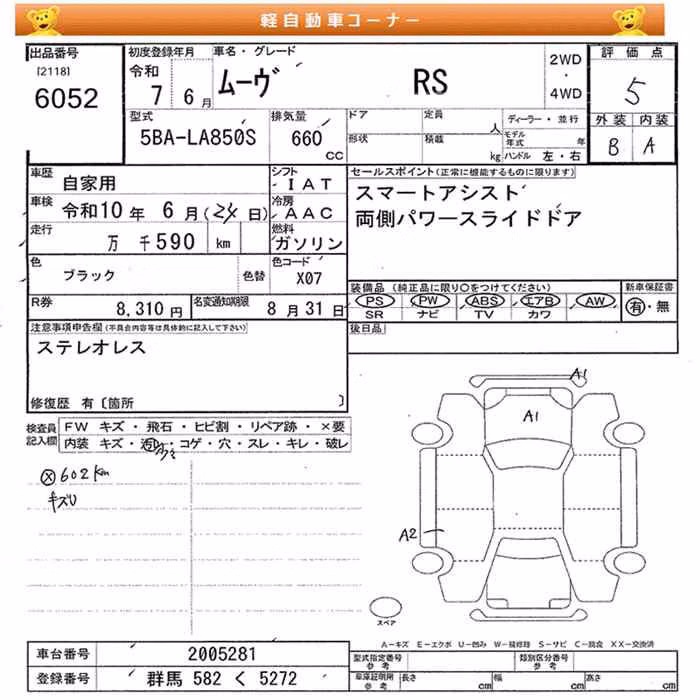 軽自動車コーナー
出品番号 初度登録年月 車名・グレード 2WD・4WD 評価点
[2118] 令和
6052 7 6月 ムーヴ RS 5
型式 排気量 ドア 定員 人 ディーラー・並行 外装 内装
5BA-LA850S 660 CC 形状 積載 kg モデル年式 年 ハンドル 左・右 B A
車歴 自家用 シフト IAT セールスポイント(正常に機能するものに限ります)
車検 令和10年 6月(24日) 冷房 AAC スマートアシスト
走行 万 千590 km 燃料 ガソリン 両側パワースライドドア
色 ブラック 色替 色コード X07
装備品 (純正品に限り○をつけてください) 新車保証書
R券 8,310円 名変通知期限 8月31日 PS PW ABS エアB AW 有・無
SR ナビ TV カワ
注意事項申告欄(不具合内容等は具体的に記入して下さい) 後日品
ステレオレス
修復歴 有〔箇所 〕
検査員記入欄 FW キズ・飛石・ヒビ割・リペア跡・×要
内装 キズ・・コゲ・穴・スレ・キレ・破レ
602km
キズU
A1
A1
A2
スペア
A-キズ E-エクボ U-凹み W-補修跡 S-サビ C-腐食 XX-交換済
車台番号 2005281 型式指定番号 参考 類別区分番号 参考
登録番号 群馬 582 く 5272 車庫証明用 参考 長さ cm 幅 cm 高さ cm